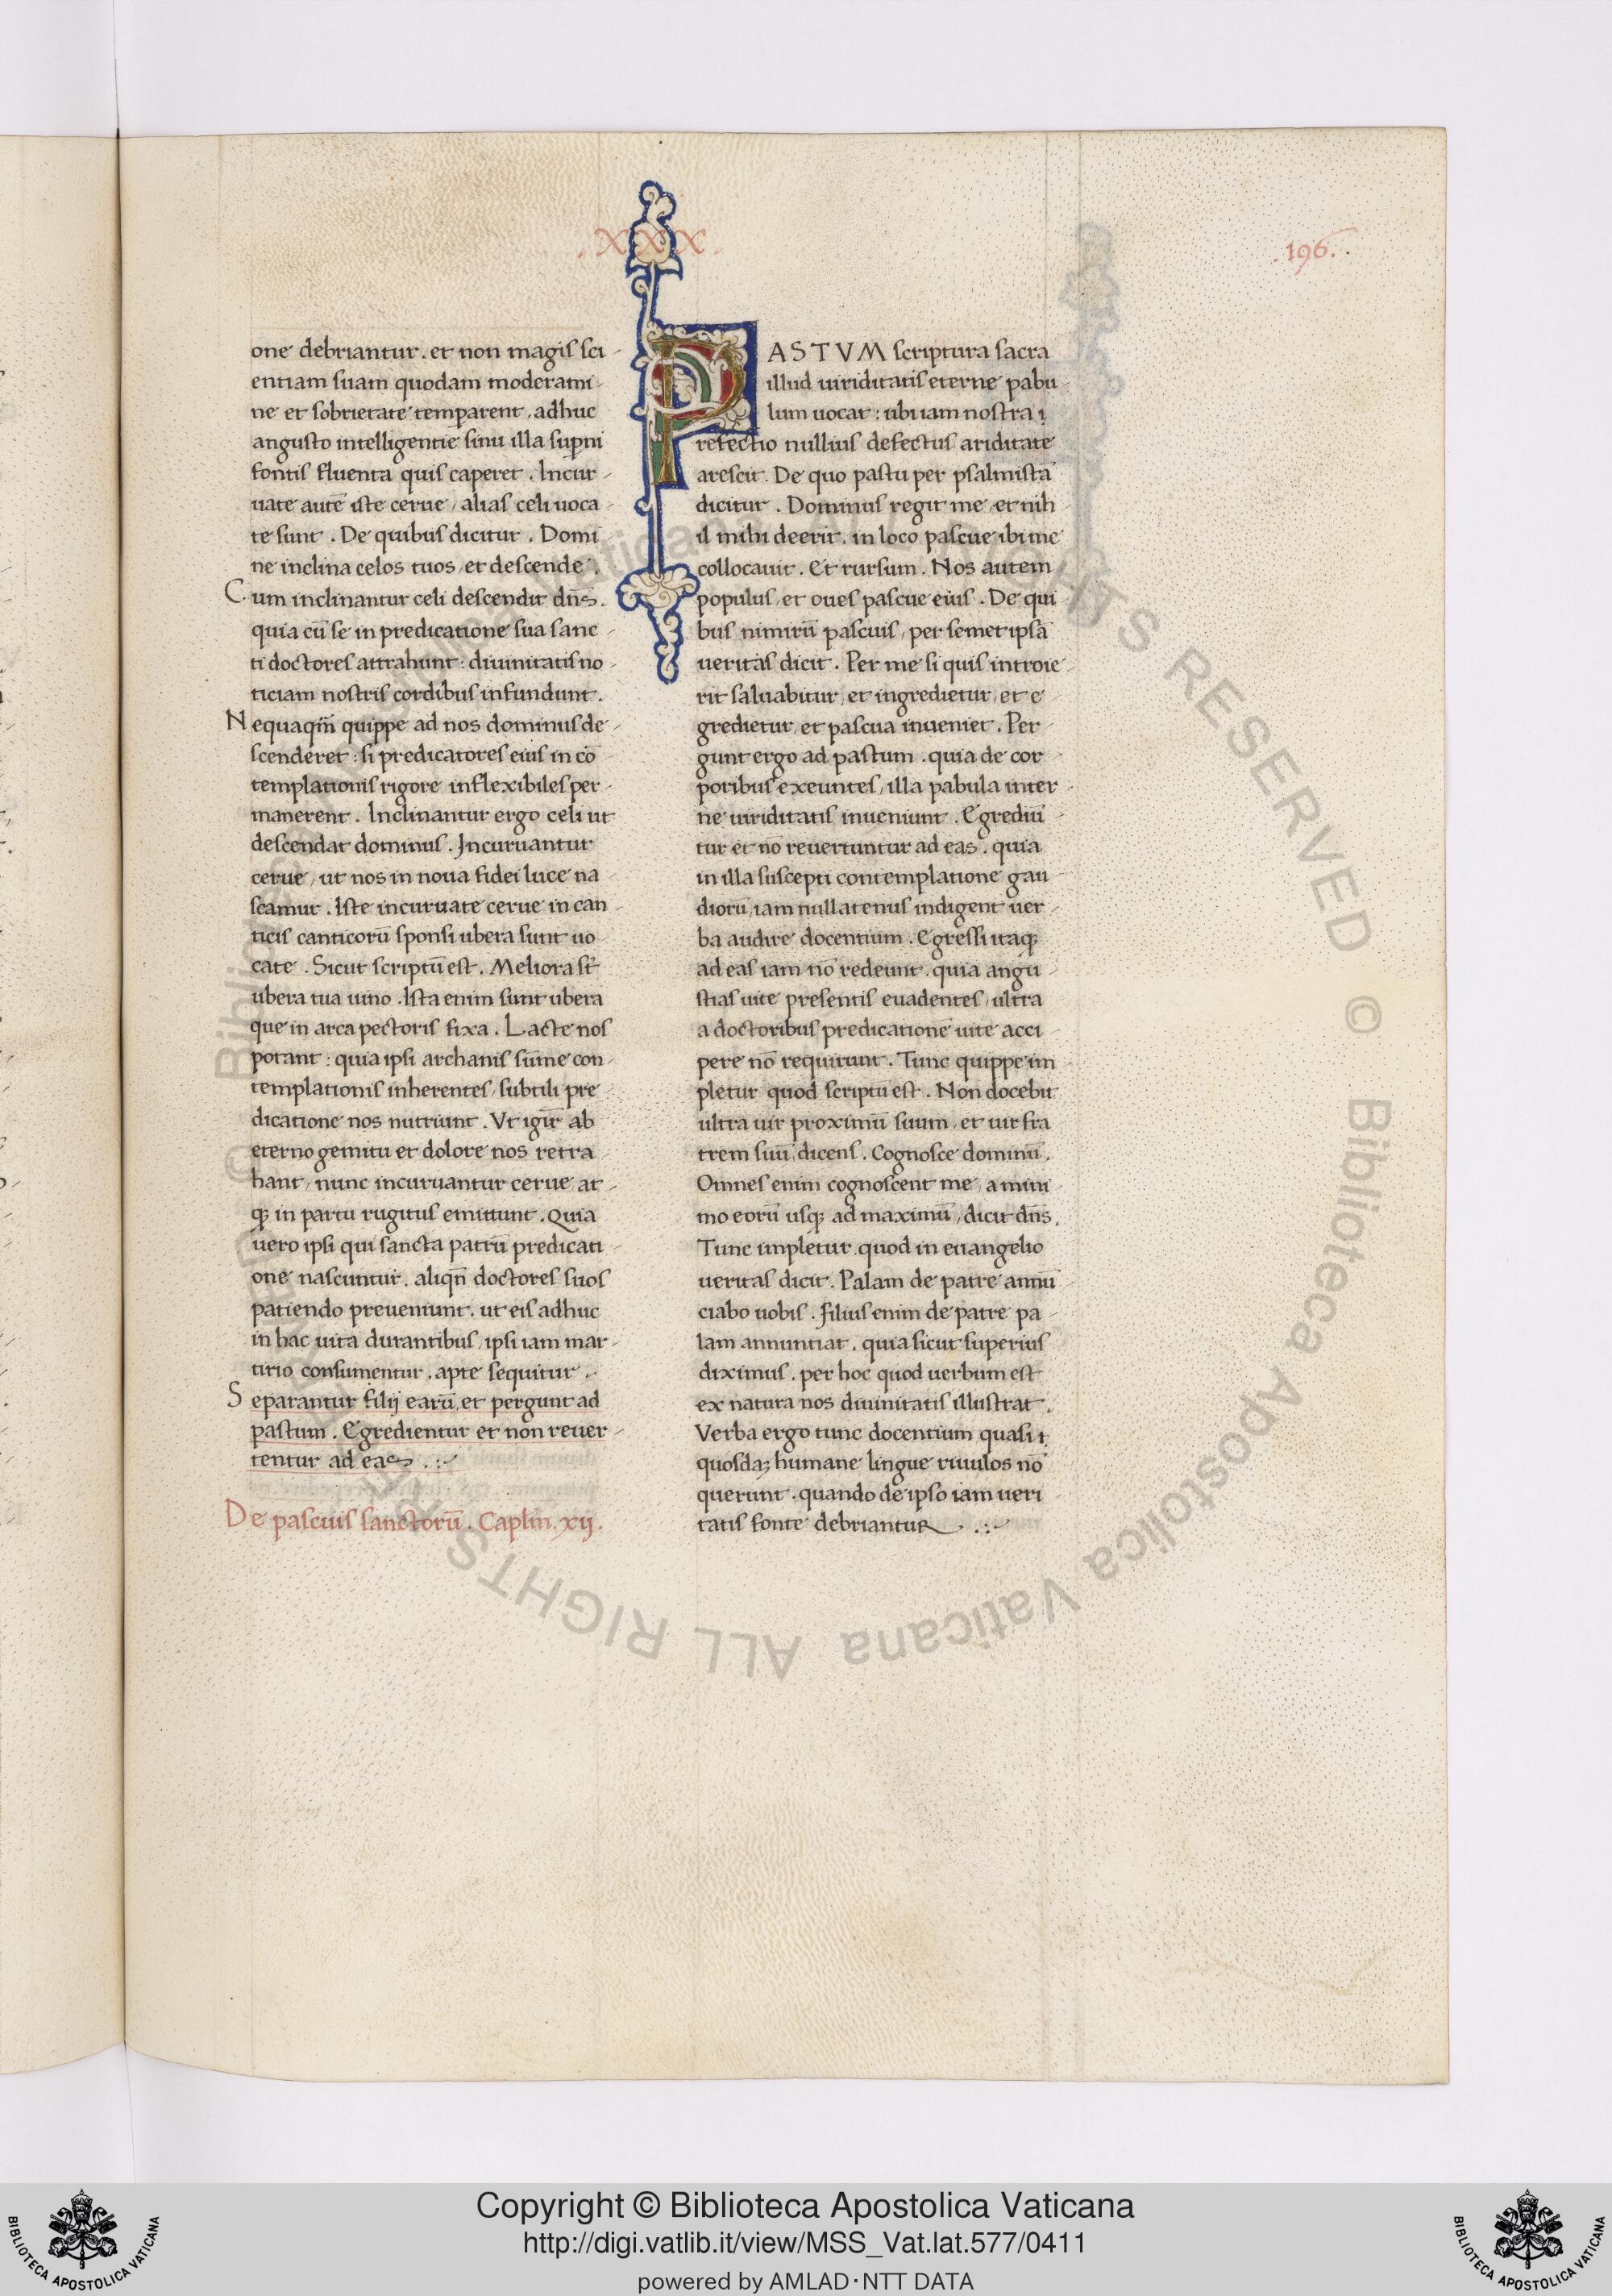 .XXX.
.196.
one debriantur. et non magis sci-
entiam suam quodam moderami-
ne et sobrietate temparent, adhuc
angusto intelligentie sinu illa supni
fontis fluenta quis caperet. Incur-
uate autē iste cerue, alias celi uoca-
te sunt. De quibus dicitur. Domi-
ne inclina celos tuos, et descende.
Cum inclinantur celi descendit dn̄s.
quia cū se in predicatione sua sanc-
ti doctores attrahunt: diuinitatis no-
ticiam nostris cordibus infundunt.
Nequaqm̄ quippe ad nos dominus de-
scenderet: si predicatores eius in cō-
templationis rigore inflexibiles per-
manerent. Inclinantur ergo celi ut
descendat dominus. Incuruantur
cerue, ut nos in noua fidei luce na
scamur. Iste incuruate cerue in can-
ticis canticorū sponsi ubera sunt uo-
cate. Sicut scriptū est. Meliora st̄
ubera tua uino. Ista enim sunt ubera
que in arca pectoris fixa. Lacte nos
potant: quia ipsi archanis sūme con-
templationis inherentes, subtili pre-
dicatione nos nutriunt. Vt igit̄ ab
eterno gemitu et dolore nos retra-
hant, nunc incuruantur cerue, at-
q; in partu rugitus emittunt. Quia
uero ipsi qui sancta patrū predicati-
one nascuntur. aliqn̄ doctores suos
patiendo preueniunt. ut eis adhuc
in hac uita durantibus, ipsi iam mar-
tirio consumentur. apte sequitur.
Separantur filij earū, et pergunt ad
pastum. Egredientur et non reuer-
tentur ad eas.
De pascuis sanctorū. Caplm̄. xij.
PASTVM scriptura sacra
illud uiriditatis eterne pabu-
lum uocat: ubi iam nostra ı
refectio nullius defectus ariditate
arescit. De quo pastu per psalmistā
dicitur. Dominus regit me, et nih-
il mihi deerit. in loco pascue ibi me
collocauit. Et rursum. Nos autem
populus, et oues pascue eius. De qui-
bus nimirū pascuis, per semetipsā
ueritas dicit. Per me si quis introie-
rit saluabitur, et ingredietur, et e-
gredietur, et pascua inueniet. Per-
gunt ergo ad pastum. quia de cor-
poribus exeuntes, illa pabula inter-
ne uiriditatis inueniunt. Egrediū-
tur et nō reuertuntur ad eas. quia
in illa suscepti contemplatione gau-
diorū, iam nullatenus indigent uer-
ba audire docentium. Egressi itaq;
ad eas iam nō redeunt. quia angu-
stias uite presentis euadentes, ultra
a doctoribus predicationē uite acci-
pere nō requirunt. Tunc quippe im-
pletur quod scriptū est. Non docebit
ultra uir proximū suum, et uir fra-
trem suū, dicens. Cognosce dominū.
Omnes enim cognoscent me, a mini-
mo eorū usq; ad maximū, dicit dn̄s.
Tunc impletur quod in euangelio
ueritas dicit. Palam de patre annū-
ciabo uobis. filius enim de patre pa-
lam annuntiat. quia sicut superius
diximus. per hoc quod uerbum est
ex natura nos diuinitatis illustrat.
Verba ergo tunc docentium quasi ı
quosdaꝫ humane lingue riuulos nō
querunt. quando de ipso iam ueri-
tatis fonte debriantur.
© Biblioteca Apostolica Vaticana ALL RIGHTS RESERVED © Biblioteca Apostolica Vaticana ALL RIGHTS RESERVED
Copyright © Biblioteca Apostolica Vaticana
http://digi.vatlib.it/view/MSS_Vat.lat.577/0411
powered by AMLAD·NTT DATA
BIBLIOTECA APOSTOLICA VATICANA
BIBLIOTECA APOSTOLICA VATICANA